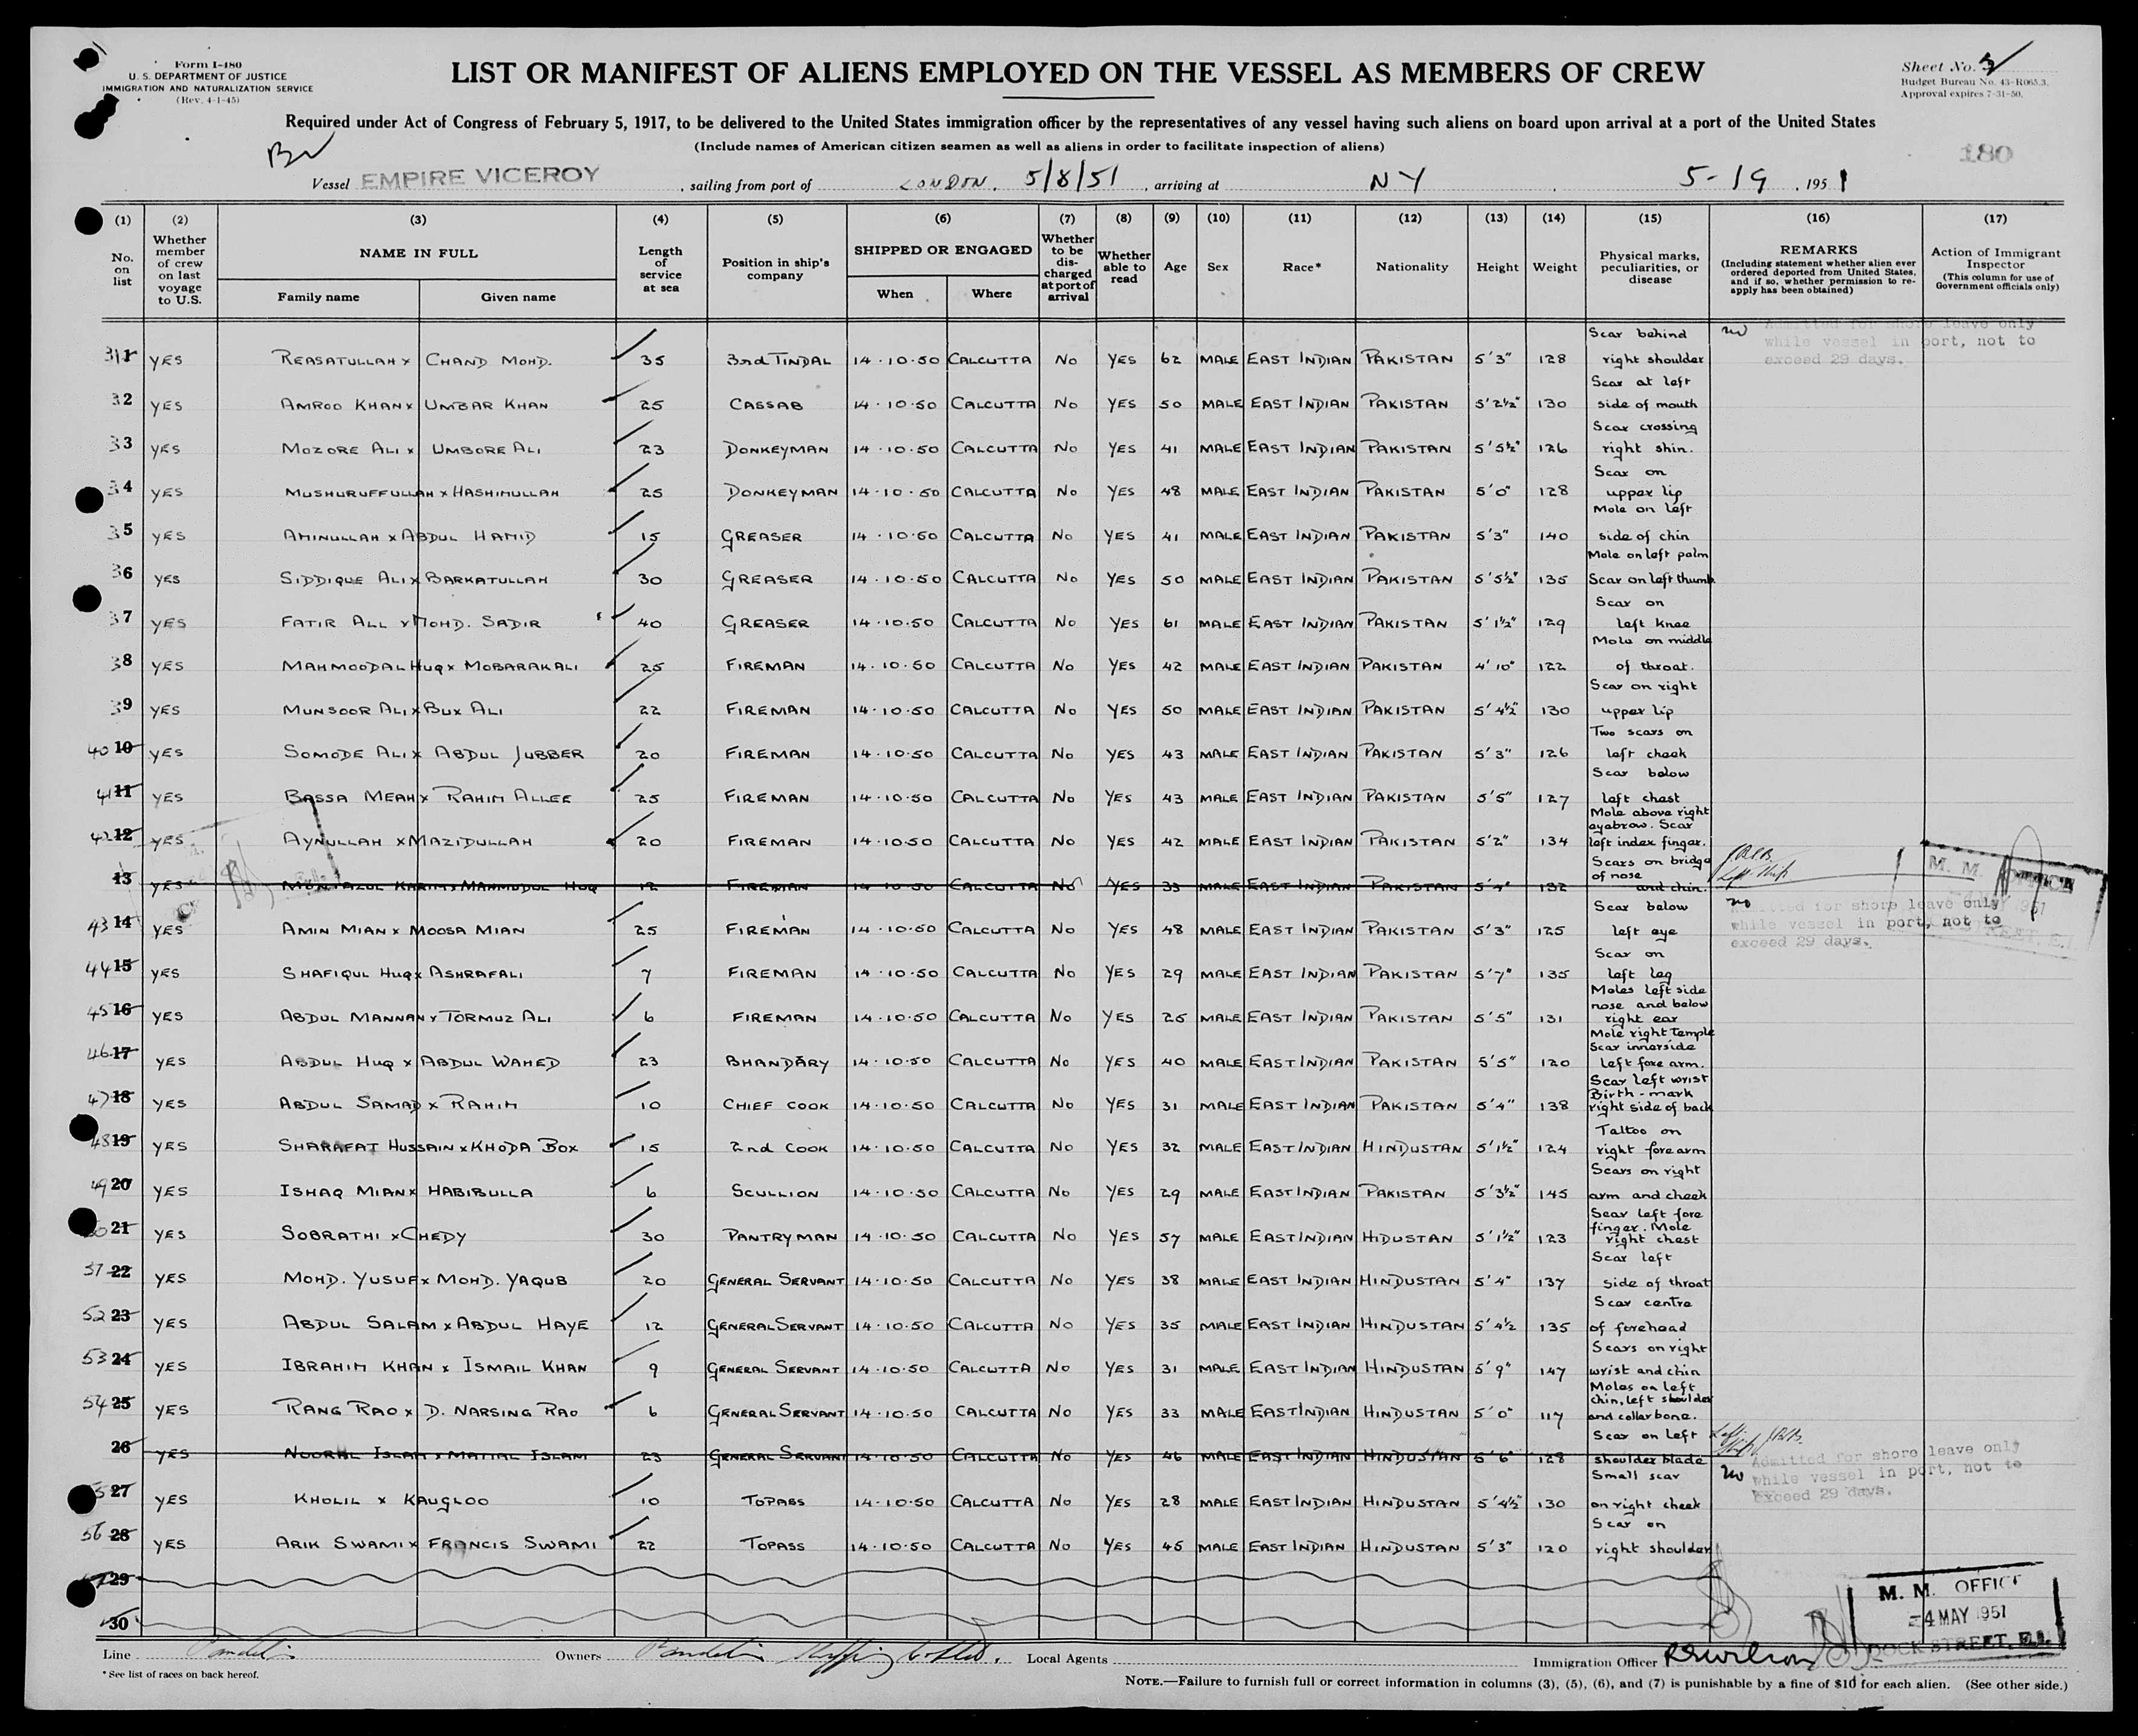 Form I-480
U. S. DEPARTMENT OF JUSTICE
IMMIGRATION AND NATURALIZATION SERVICE
(Rev. 4-1-45)
LIST OR MANIFEST OF ALIENS EMPLOYED ON THE VESSEL AS MEMBERS OF CREW
Sheet No. 3
Budget Bureau No. 43-R065.3.
Approval expires 7-31-50.
Required under Act of Congress of February 5, 1917, to be delivered to the United States immigration officer by the representatives of any vessel having such aliens on board upon arrival at a port of the United States
(Include names of American citizen seamen as well as aliens in order to facilitate inspection of aliens)
180
Vessel EMPIRE VICEROY, sailing from port of LONDON. 5/8/51, arriving at NY 5-19, 1951
(1) (2) (3) (4) (5) (6) (7) (8) (9) (10) (11) (12) (13) (14) (15) (16) (17)
No. on list
Whether member of crew on last voyage to U.S.
NAME IN FULL
Family name Given name
Length of service at sea
Position in ship's company
SHIPPED OR ENGAGED
When Where
Whether to be discharged at port of arrival
Whether able to read
Age Sex Race* Nationality Height Weight
Physical marks, peculiarities, or disease
REMARKS
(Including statement whether alien ever ordered deported from United States, and if so, whether permission to reapply has been obtained)
Action of Immigrant Inspector
(This column for use of Government officials only)
31 1 YES REASATULLAH x CHAND MOHD. 35 3rd TINDAL 14·10·50 CALCUTTA NO YES 62 MALE EAST INDIAN PAKISTAN 5'3" 128 Scar behind right shoulder no Admitted for shore leave only while vessel in port, not to exceed 29 days.
32 YES AMROO KHAN x UMBAR KHAN 25 CASSAB 14·10·50 CALCUTTA NO YES 50 MALE EAST INDIAN PAKISTAN 5'2½" 130 Scar at left side of mouth
33 YES MOZORE ALI x UMBORE ALI 23 DONKEYMAN 14·10·50 CALCUTTA NO YES 41 MALE EAST INDIAN PAKISTAN 5'5½" 126 Scar crossing right shin.
34 YES MUSHURUFFULLAH x HASHIMULLAH 25 DONKEYMAN 14·10·50 CALCUTTA NO YES 48 MALE EAST INDIAN PAKISTAN 5'0" 128 Scar on upper lip
35 YES AMINULLAH x ABDUL HAMID 15 GREASER 14·10·50 CALCUTTA NO YES 41 MALE EAST INDIAN PAKISTAN 5'3" 140 Mole on left side of chin
36 YES SIDDIQUE ALI x BARKATULLAH 30 GREASER 14·10·50 CALCUTTA NO YES 50 MALE EAST INDIAN PAKISTAN 5'5½" 135 Mole on left palm Scar on left thumb
37 YES FATIR ALL x MOHD. SADIR 40 GREASER 14·10·50 CALCUTTA NO YES 61 MALE EAST INDIAN PAKISTAN 5'1½" 129 Scar on left knee
38 YES MAHMOODAL HUQ x MOBARAK ALI 25 FIREMAN 14·10·50 CALCUTTA NO YES 42 MALE EAST INDIAN PAKISTAN 4'10" 122 Mole on middle of throat.
39 YES MUNSOOR ALI x BUX ALI 22 FIREMAN 14·10·50 CALCUTTA NO YES 50 MALE EAST INDIAN PAKISTAN 5'4½" 130 Scar on right upper lip
40 10 YES SOMODE ALI x ABDUL JUBBER 20 FIREMAN 14·10·50 CALCUTTA NO YES 43 MALE EAST INDIAN PAKISTAN 5'3" 126 Two scars on left cheek
41 11 YES BASSA MEAH x RAHIM ALLEE 25 FIREMAN 14·10·50 CALCUTTA NO YES 43 MALE EAST INDIAN PAKISTAN 5'5" 127 Scar below left chest
42 12 YES AYNULLAH x MAZIDULLAH 20 FIREMAN 14·10·50 CALCUTTA NO YES 42 MALE EAST INDIAN PAKISTAN 5'2" 134 Mole above right eyebrow. Scar left index finger.
13 YES MONTAZUL KARIM x MAHMUDUL HUQ 12 FIREMAN 14·10·50 CALCUTTA NO YES 33 MALE EAST INDIAN PAKISTAN 5'4" 132 Scars on bridge of nose and chin. Left Ship M. M. OFFICE
43 14 YES AMIN MIAN x MOOSA MIAN 25 FIREMAN 14·10·50 CALCUTTA NO YES 48 MALE EAST INDIAN PAKISTAN 5'3" 125 Scar below left eye no Admitted for shore leave only while vessel in port, not to exceed 29 days.
44 15 YES SHAFIQUL HUQ x ASHRAFALI 7 FIREMAN 14·10·50 CALCUTTA NO YES 29 MALE EAST INDIAN PAKISTAN 5'7" 135 Scar on left leg
45 16 YES ABDUL MANNAN x TORMUZ ALI 6 FIREMAN 14·10·50 CALCUTTA NO YES 25 MALE EAST INDIAN PAKISTAN 5'5" 131 Moles left side nose and below right ear
46 17 YES ABDUL HUQ x ABDUL WAHED 23 BHANDARY 14·10·50 CALCUTTA NO YES 40 MALE EAST INDIAN PAKISTAN 5'5" 120 Mole right Temple Scar innerside left fore arm.
47 18 YES ABDUL SAMAD x RAHIM 10 CHIEF COOK 14·10·50 CALCUTTA NO YES 31 MALE EAST INDIAN PAKISTAN 5'4" 138 Scar left wrist Birth-mark right side of back
48 19 YES SHARAFAT HUSSAIN x KHODA BOX 15 2nd COOK 14·10·50 CALCUTTA NO YES 32 MALE EAST INDIAN HINDUSTAN 5'1½" 124 Tattoo on right forearm
49 20 YES ISHAQ MIAN x HABIBULLA 6 SCULLION 14·10·50 CALCUTTA NO YES 29 MALE EAST INDIAN PAKISTAN 5'3½" 145 Scars on right arm and cheek
50 21 YES SOBRATHI x CHEDY 30 PANTRYMAN 14·10·50 CALCUTTA NO YES 57 MALE EAST INDIAN HIDUSTAN 5'1½" 123 Scar left fore finger. Mole right chest
51 22 YES MOHD. YUSUF x MOHD. YAQUB 20 GENERAL SERVANT 14·10·50 CALCUTTA NO YES 38 MALE EAST INDIAN HINDUSTAN 5'4" 137 Scar left side of throat
52 23 YES ABDUL SALAM x ABDUL HAYE 12 GENERAL SERVANT 14·10·50 CALCUTTA NO YES 35 MALE EAST INDIAN HINDUSTAN 5'4½ 135 Scar centre of forehead
53 24 YES IBRAHIM KHAN x ISMAIL KHAN 9 GENERAL SERVANT 14·10·50 CALCUTTA NO YES 31 MALE EAST INDIAN HINDUSTAN 5'9" 147 Scars on right wrist and chin
54 25 YES RANG RAO x D. NARSING RAO 6 GENERAL SERVANT 14·10·50 CALCUTTA NO YES 33 MALE EAST INDIAN HINDUSTAN 5'0" 117 Moles on left chin, left shoulder and collar bone.
26 YES NOORAL ISLAM x MATIAL ISLAM 23 GENERAL SERVANT 14·10·50 CALCUTTA NO YES 46 MALE EAST INDIAN HINDUSTAN 5'6" 128 Scar on left shoulder blade Left Ship
55 27 YES KHOLIL x KAUGLOO 10 TOPASS 14·10·50 CALCUTTA NO YES 28 MALE EAST INDIAN HINDUSTAN 5'4½" 130 Small scar on right cheek no Admitted for shore leave only while vessel in port, not to exceed 29 days.
56 28 YES ARIK SWAMI x FRANCIS SWAMI 22 TOPASS 14·10·50 CALCUTTA NO YES 45 MALE EAST INDIAN HINDUSTAN 5'3" 120 Scar on right shoulder
29
30
M. M. OFFICE
-4 MAY 1951
DOCK STREET, E.1.
Line Owners Local Agents Immigration Officer
* See list of races on back hereof.
NOTE.—Failure to furnish full or correct information in columns (3), (5), (6), and (7) is punishable by a fine of $10 for each alien. (See other side.)